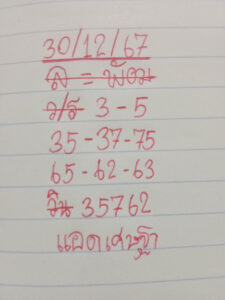 30/12/67
ล = พ้อน
ว/ร 3 - 5
35 - 37 - 75
65 - 62 - 63
วิน 35762
แอดเศรษฐา